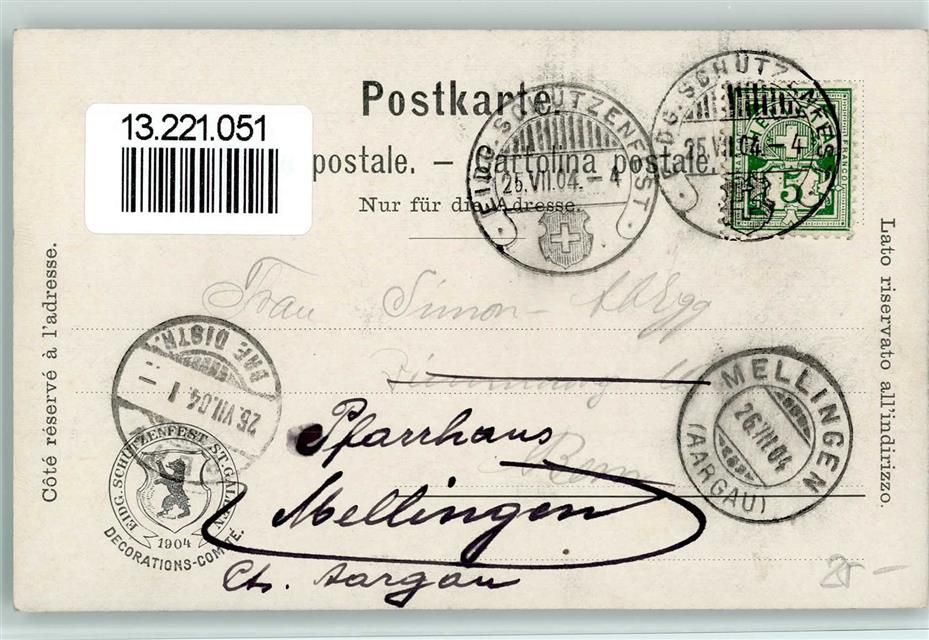 Postkarte.
13.221.051
postale. — Cartolina postale.
Nur für die Adresse.
EIDG. SCHÜTZENFEST
25.VII.04.–4
EIDG. SCHÜTZENFEST
25.VII.04.–4
HELVETIA
FRANCO
5
Côté réservé à l'adresse.
Lato riservato all'indirizzo.
Frau Simon-Abegg
Bern
Pfarrhaus
Mellingen
Ct. Aargau
BRF. DISTR.
25.VII.04.
MELLINGEN
26.VII.04
(AARGAU)
EIDG. SCHÜTZENFEST ST. GALLEN
1904
DECORATIONS-COMITÉ.
25 –